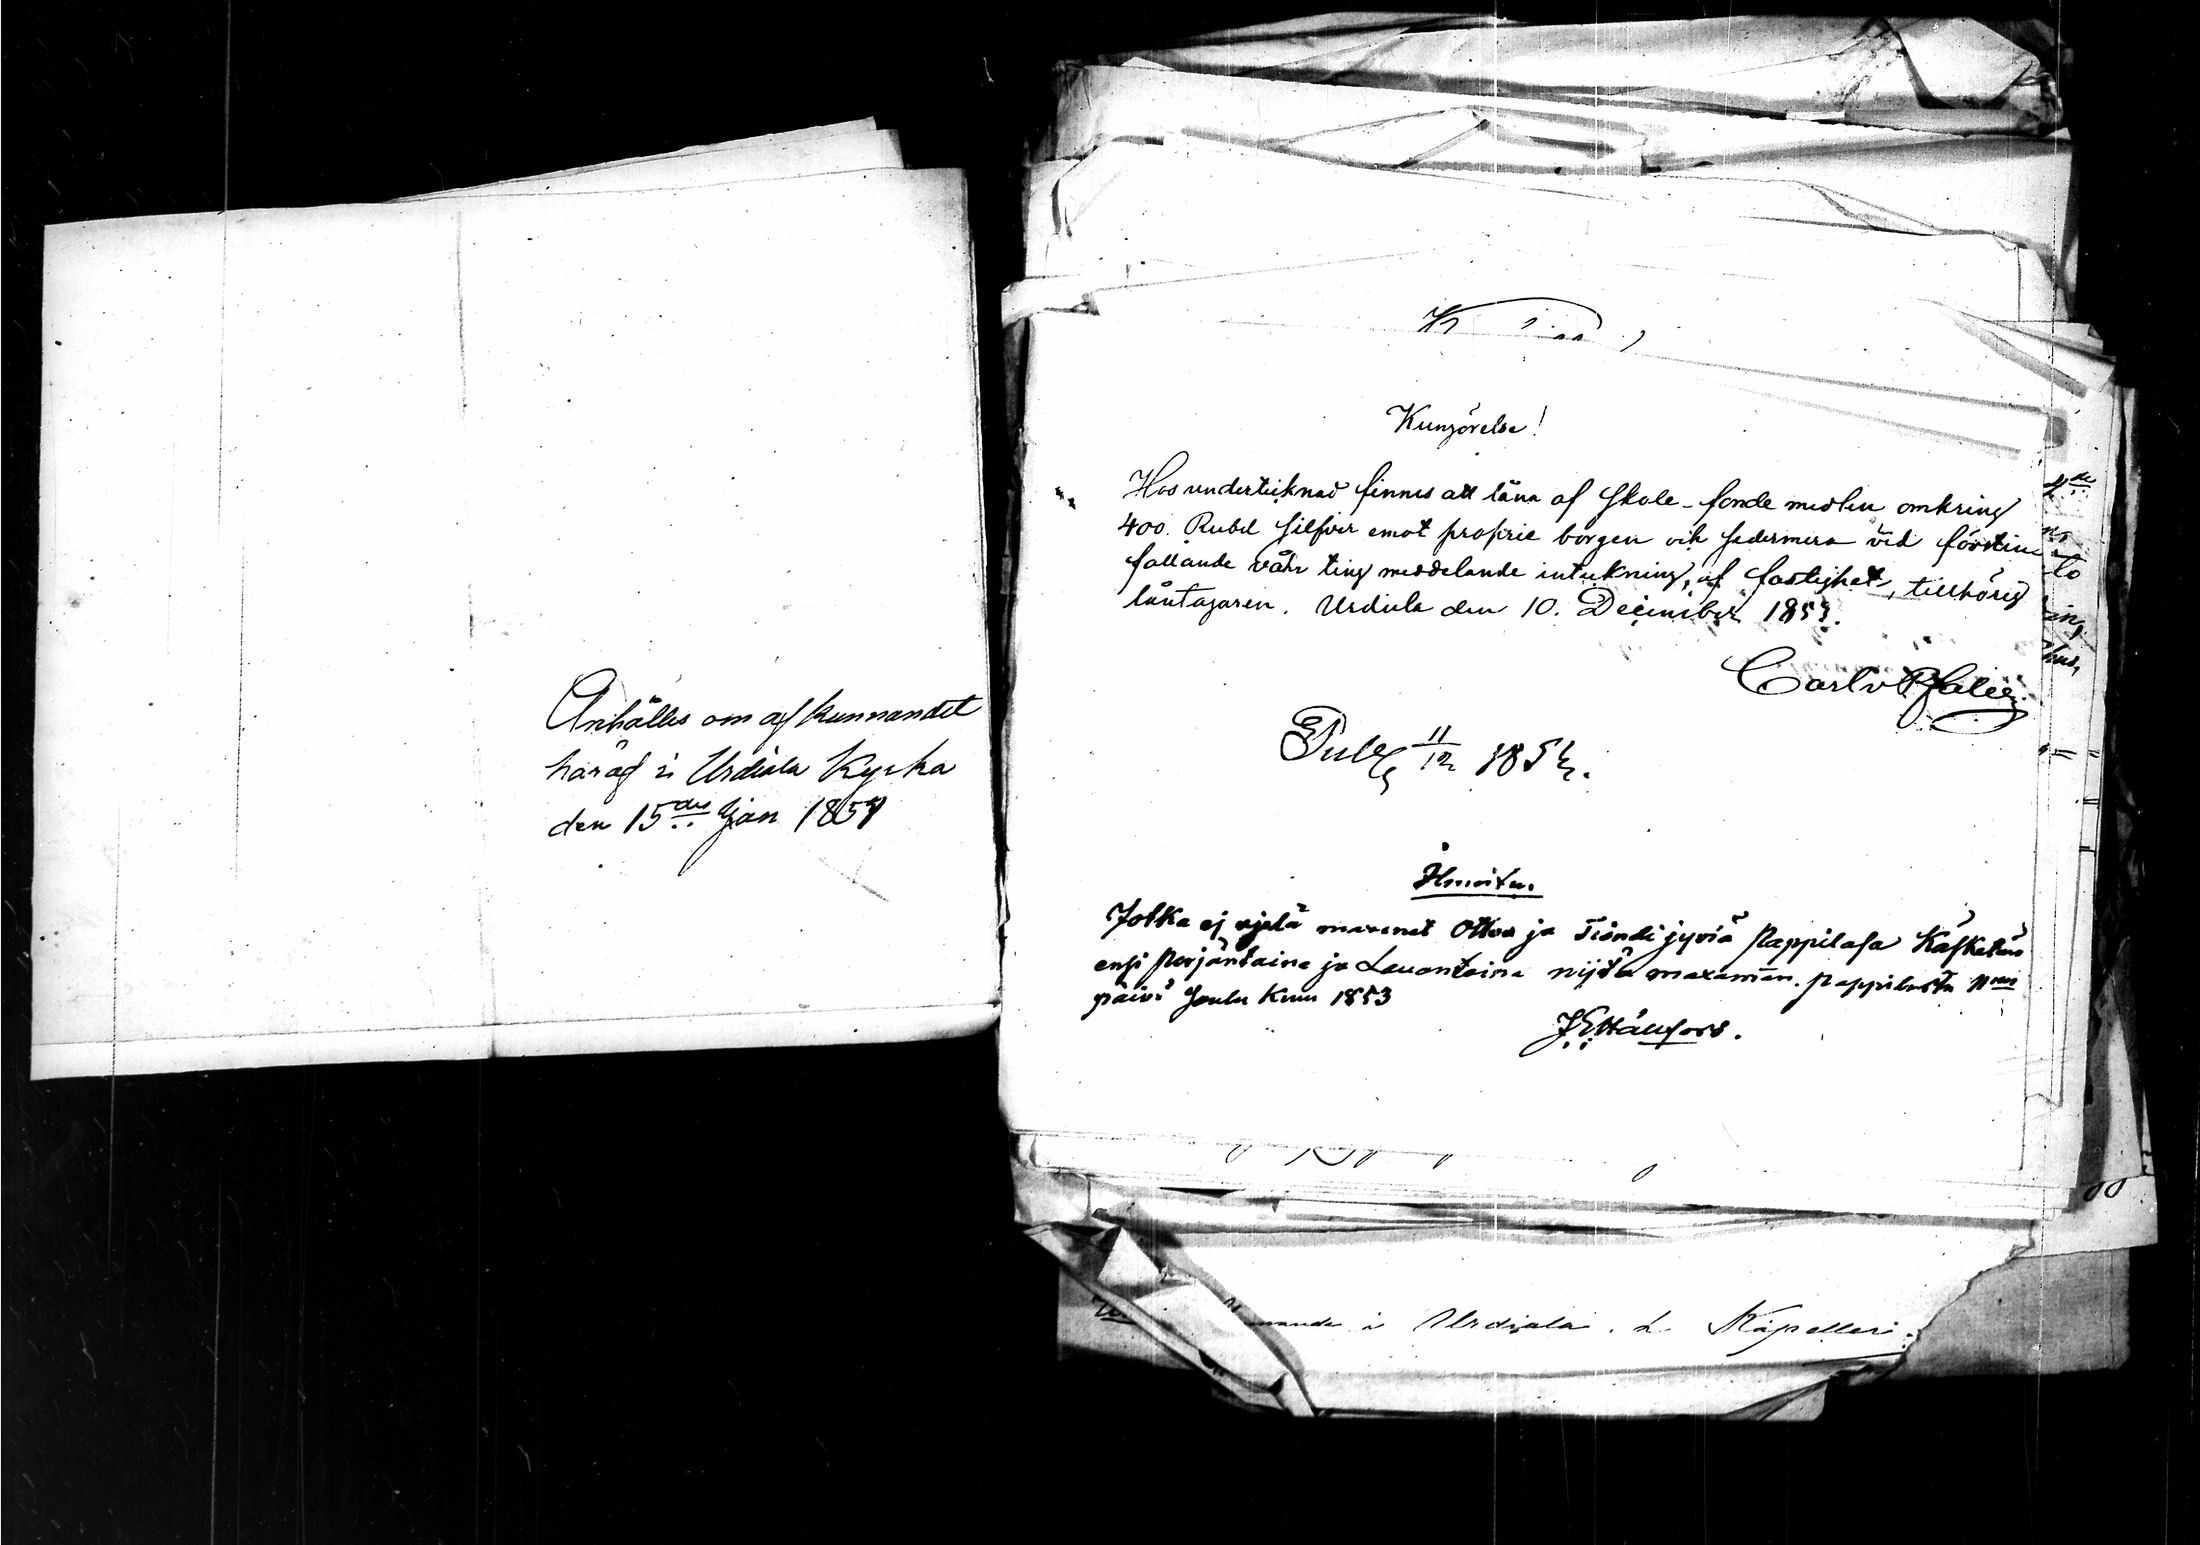 Anhålles om af kunnandet
häraf i Urdiala Kyrka
den 15de Jan 1854
Kungörelse!
Hos undertecknad finnes att låna af Skole-fonde medlen omkring
400. Rubel Silfver emot proprie borgen och sedermera vid förstin
fallande vår ting meddelande inteckning, af fastighet, tillhörig
låntagaren. Urdiala den 10. December 1853.
Carl v Pfaler
Publ 11/12 1853.
Ilmoitus.
Jotka ej vjelä maxanet Ottoa ja Tiöndi jyviä Pappilasa Käsketän
ensi Perjäntaina ja Lauantaina nijtä maxaman. Pappilasta 11
päivä Joulu Kuu 1853
J. E. Hällfors.
i Urdiala. L Kapelleri.